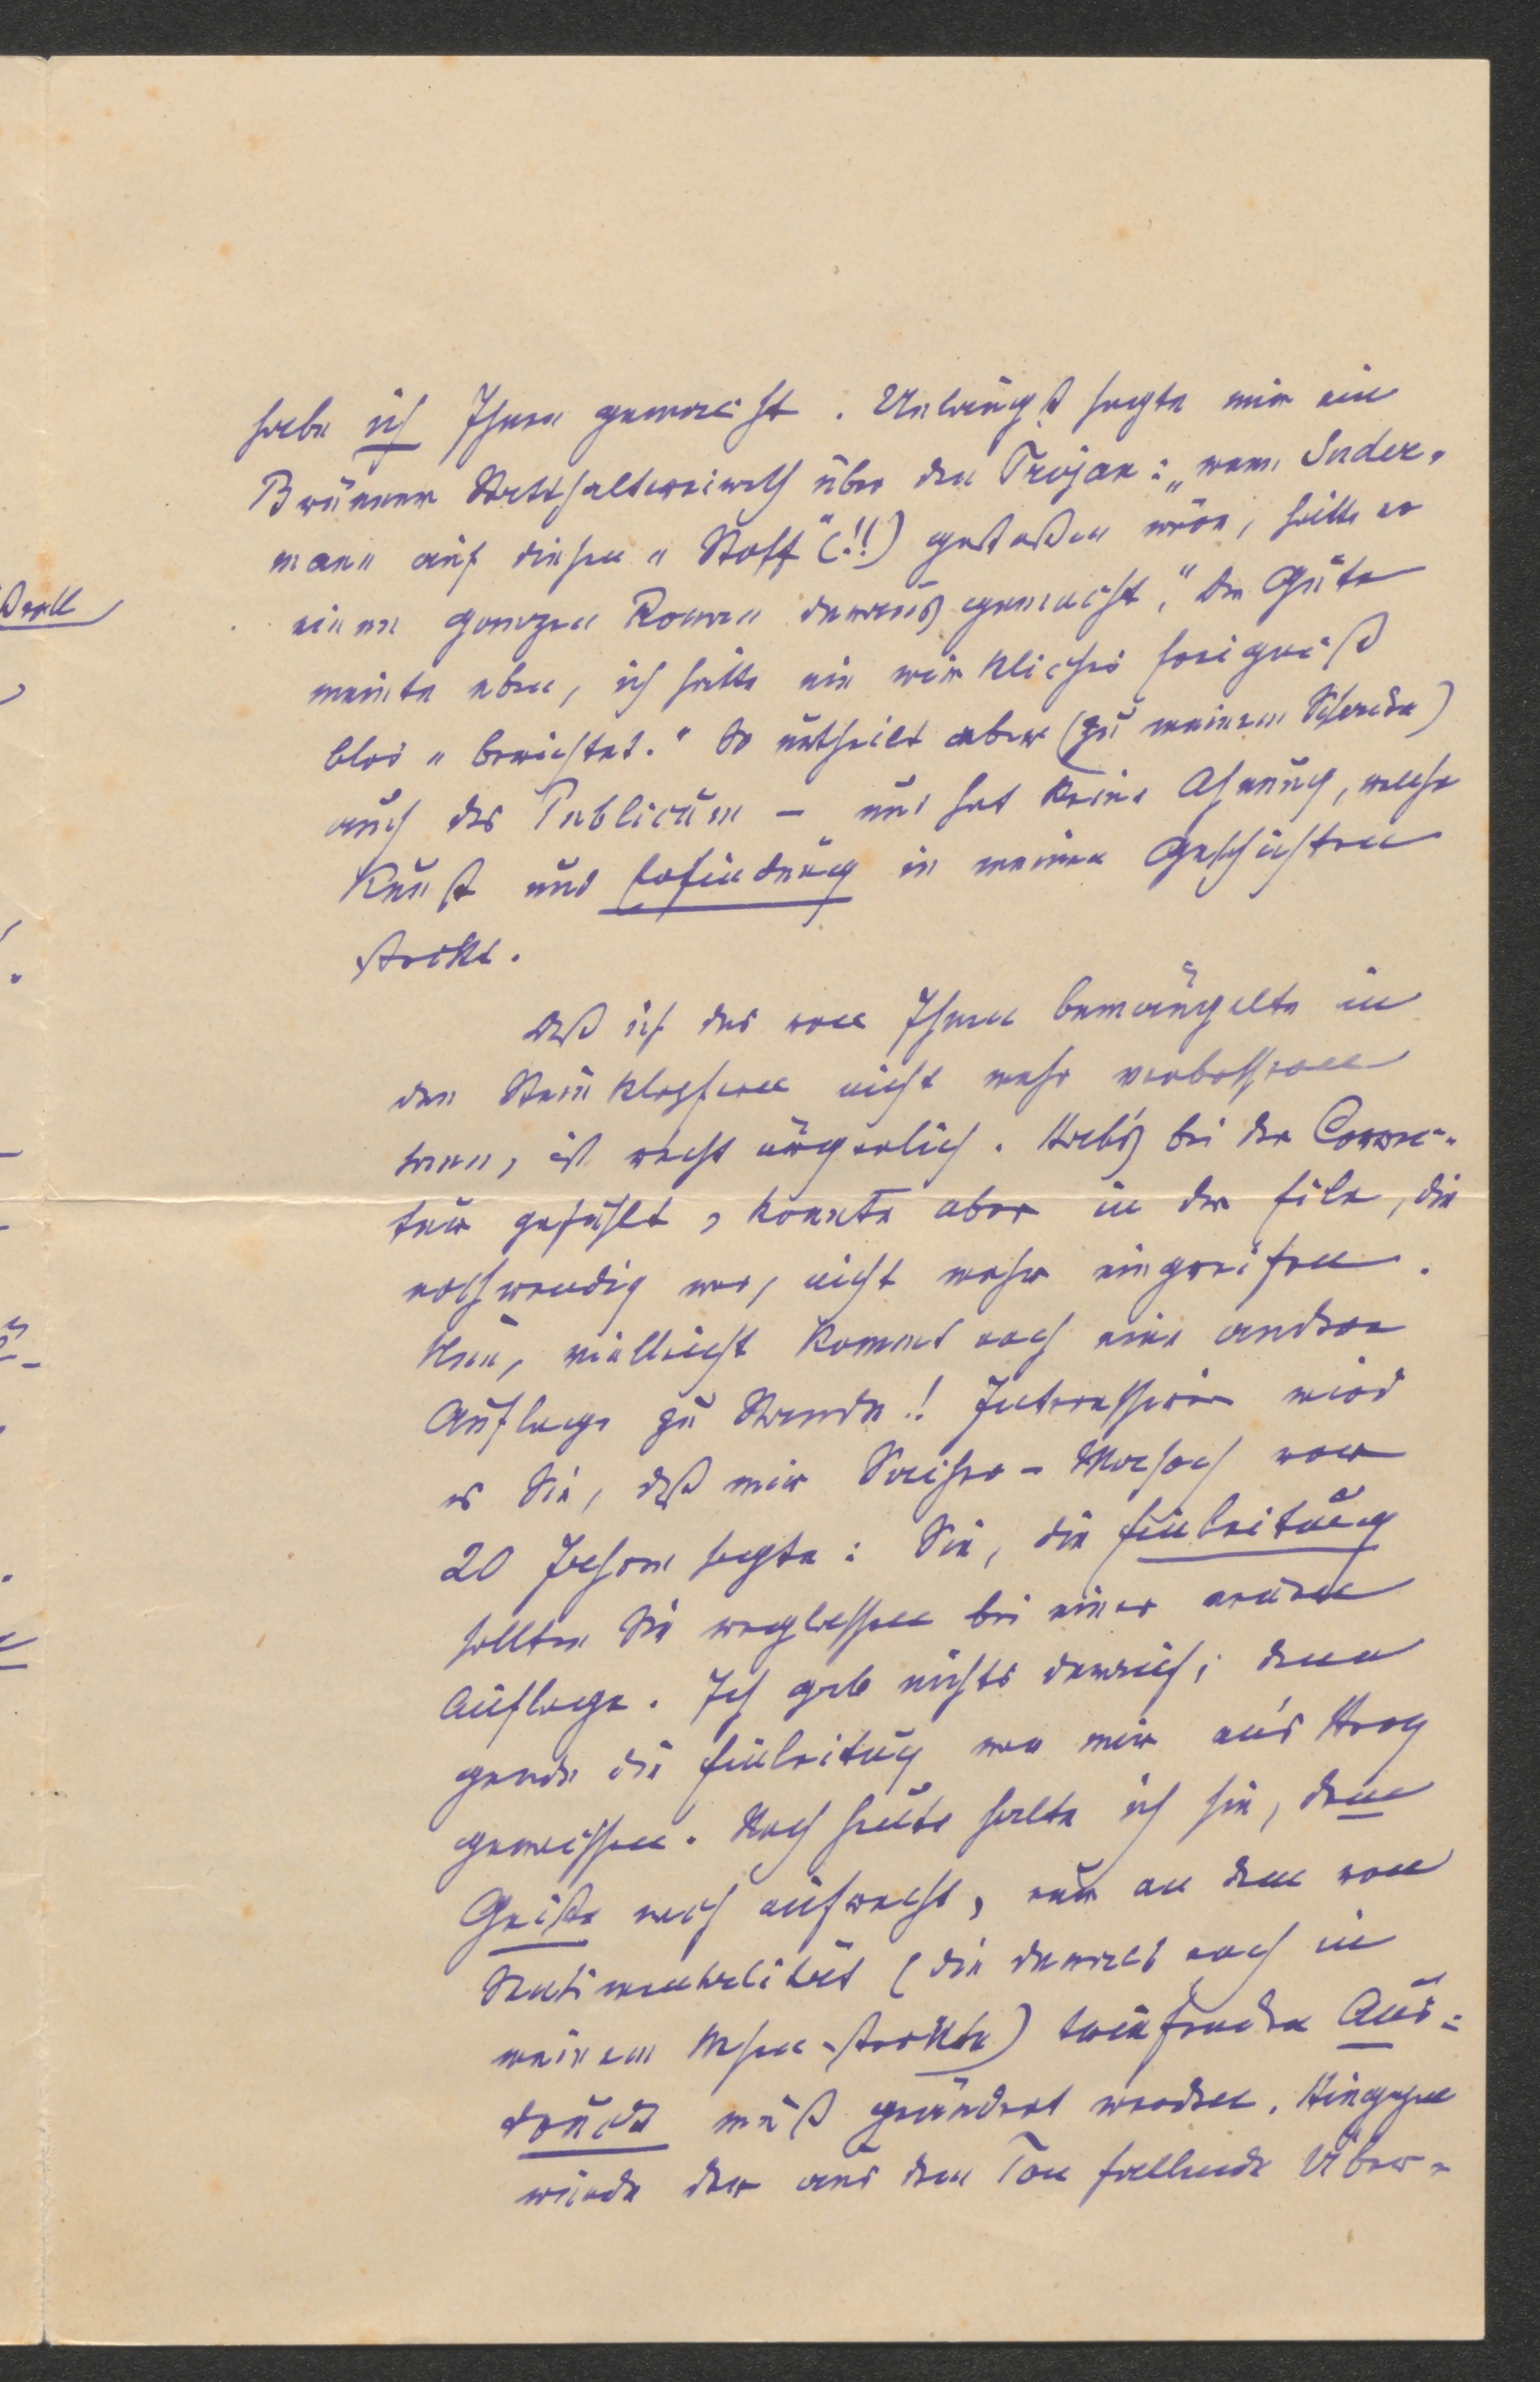 habe ich Ihnen gemacht. Unlängst sagte mir ein
Brünner Statthaltereirath über den Trojan: „wenn Suder-
mann auf diesen „Stoff“ (!!) gestoßen wäre, hätte er
einen ganzen Roman daraus gemacht.“ Der Gute
meinte eben, ich hätte ein wirkliches Ereigniß
blos „berichtet.“ So urtheilt aber (zu meinem Schaden)
auch das Publicum – und hat keine Ahnung, welche
Kunst und Erfindung in meinen Geschichten
steckt.
Daß ich das von Ihnen bemängelte in
den Steinklopfern nicht mehr verbessern
kann, ist recht ärgerlich. Hab's bei der Correc-
tur gefühlt, konnte aber in der Eile, die
nothwendig war, nicht mehr eingreifen.
Nun, vielleicht kommt noch eine andere
Auflage zu Stande! Interessiren wird
es Sie, daß mir Sacher-Masoch vor
20 Jahren sagte: Sie, die Einleitung
sollten Sie weglassen bei einer neuen
Auflage. Ich gab nichts darauf; denn
gerade die Einleitung war mir an's Herz
gewachsen. Noch heute halte ich sie, dem
Geiste nach aufrecht, nur an dem von
Sentimentalität (die damals noch in
meinem Wesen steckte) triefenden Aus-
druck muß geändert werden. Hingegen
würde der aus dem Ton fallende Über-